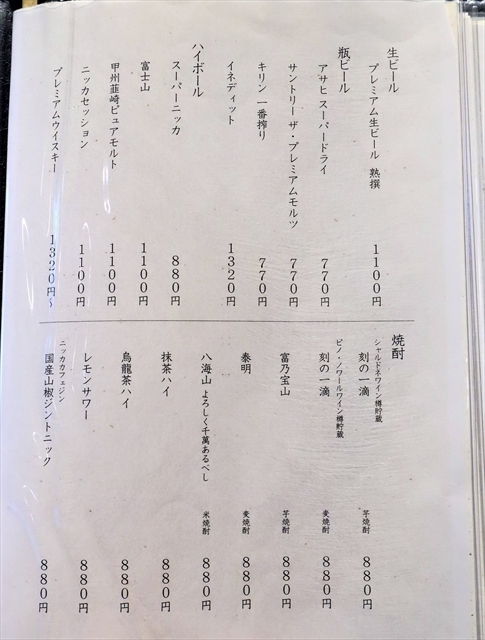 生ビール
プレミアム生ビール 熟撰 1100円
瓶ビール
アサヒ スーパードライ 770円
サントリー ザ・プレミアムモルツ 770円
キリン 一番搾り 770円
イネディット 1320円
ハイボール
スーパーニッカ 880円
富士山 1100円
甲州韮崎ピュアモルト 1100円
ニッカセッション 1100円
プレミアムウイスキー 1320円〜
焼酎
シャルドネワイン樽貯蔵
刻の一滴 芋焼酎 880円
ピノ・ノワールワイン樽貯蔵
刻の一滴 麦焼酎 880円
富乃宝山 芋焼酎 880円
泰明 麦焼酎 880円
八海山 よろしく千萬あるべし 米焼酎 880円
抹茶ハイ 880円
烏龍茶ハイ 880円
レモンサワー 880円
ニッカカフェジン
国産山椒ジントニック 880円